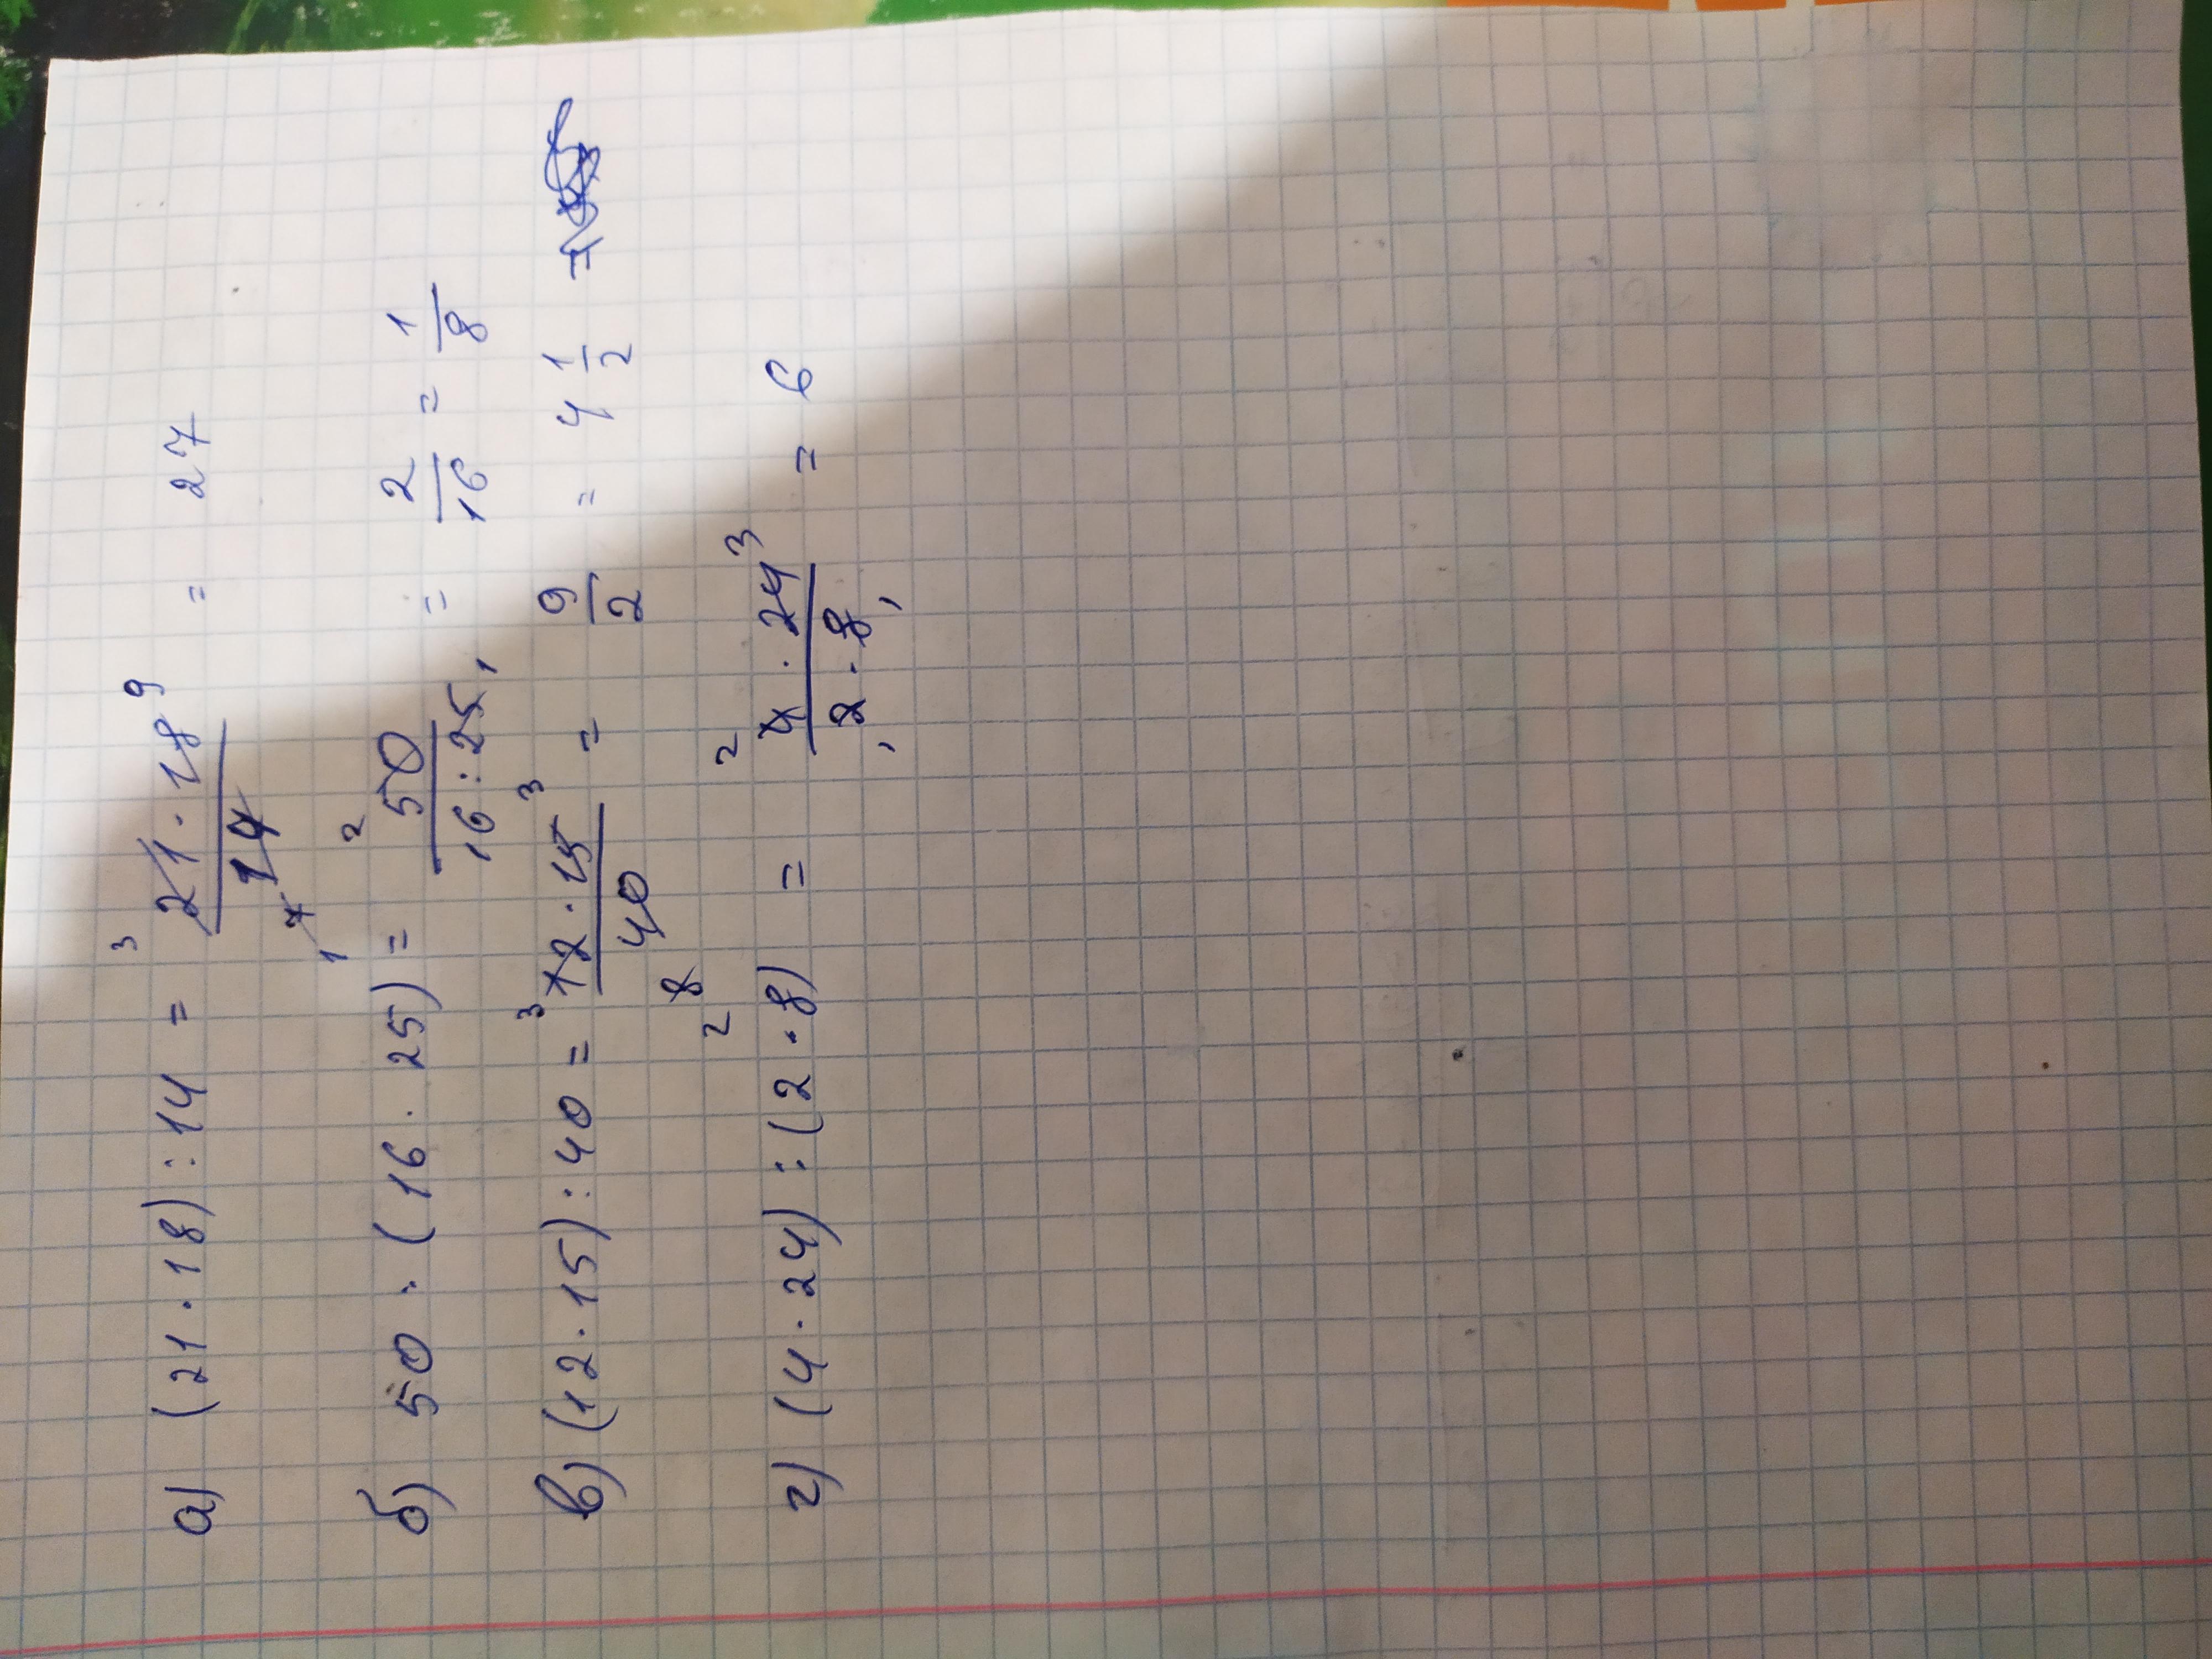 а) (21 · 18) : 14 = ³ 21 · 18 ⁹ / 14 7 1 = 27
б) 50 : (16 · 25) = ² 50 / 16 : 25 1 = 2/16 = 1/8
в) (12 · 15) : 40 = ³ 12 · 15 ³ / 40 8 2 = 9/2 = 4 1/2
г) (4 · 24) : (2 · 8) = ² 4 · 24 ³ / 1 2 · 8 1 = 6